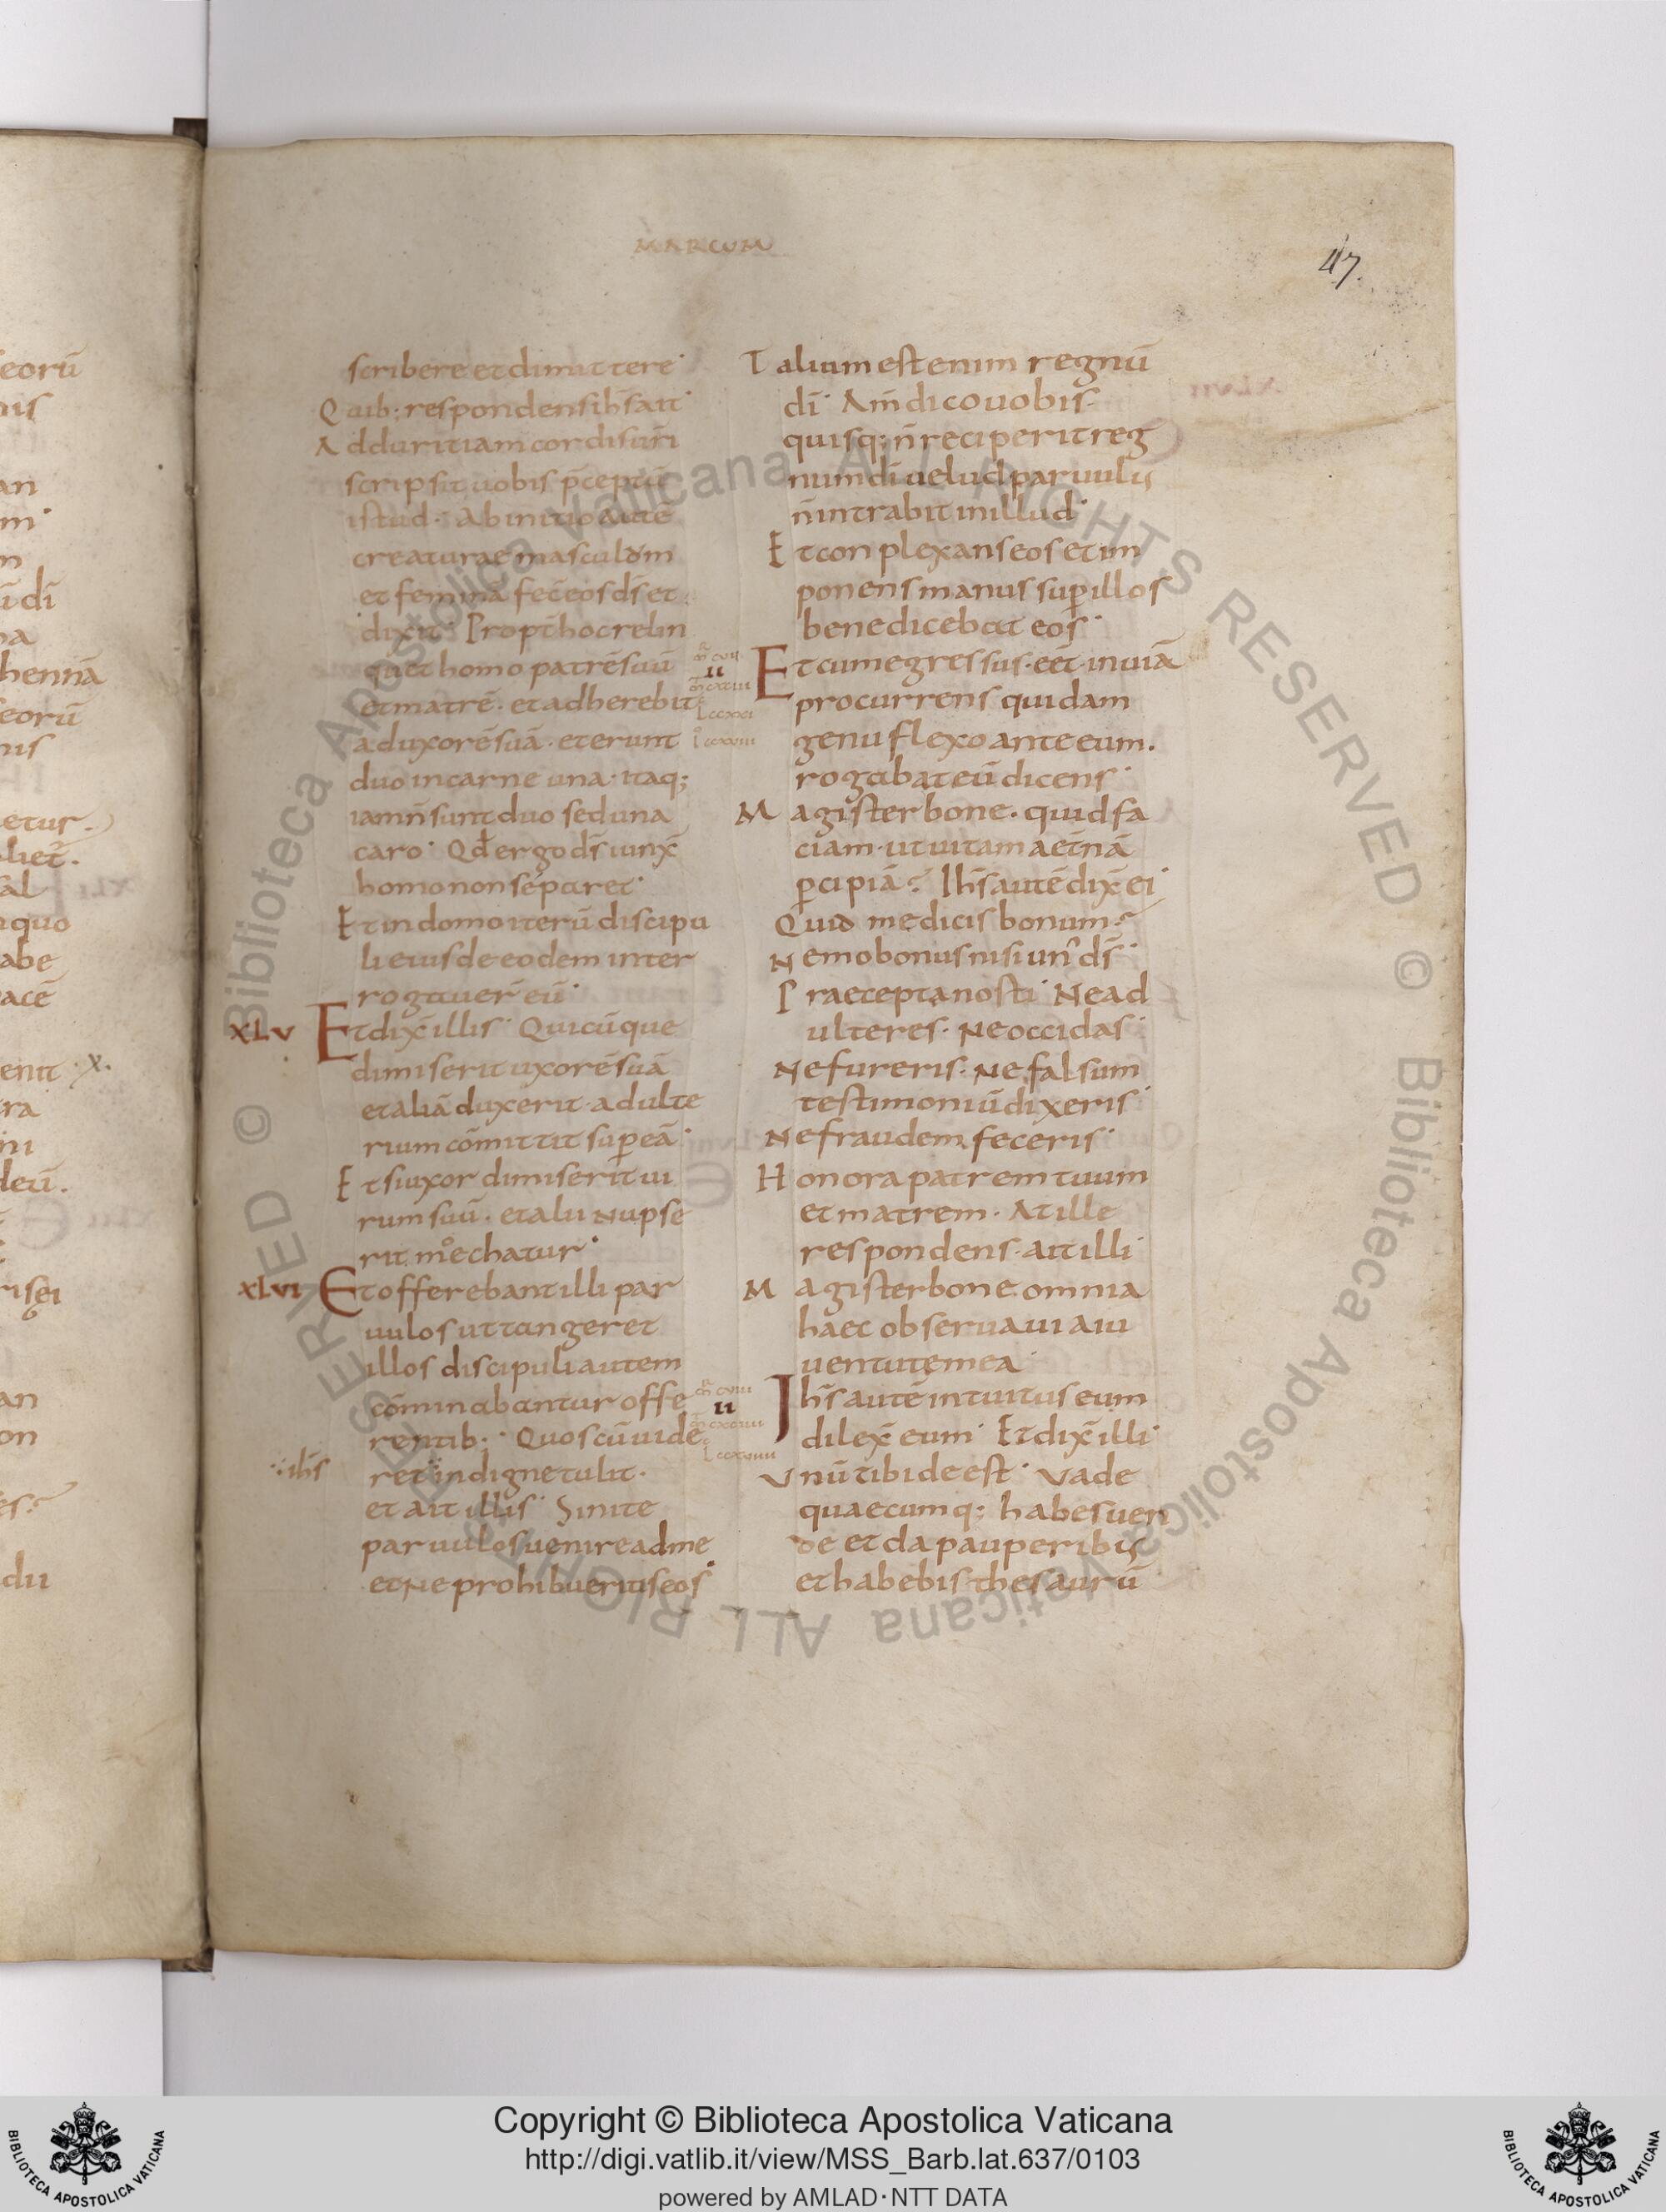 MARCUM
47.
scribere et dimittere·
Quib; respondens ihs̄ ait·
Ad duritiam cordis ur̄i
scripsit uobis p̄ceptū
istud· Ab initio autē
creaturae masculum
et feminā fec̄ eos ds̄ et
dixit· Propt̄ hoc relin
quet homo patrē suū
et matrē· et adherebit
ad uxorē suā· et erunt
duo in carne una· itaq;
iam n̄ sunt duo sed una
caro· Qd̄ ergo ds̄ iunx̄
homo non separet·
Et in domo iterū discipu
li eius de eodem inter
rogauer̄ eū·
XLV Et dix̄ illis· Quicūque
dimiserit uxorē suā
et aliā duxerit· adulte
rium cōmittit sup eā·
Et si uxor dimiserit ui
rum suū· et alii nupse
rit moechatur·
XLVI Et offerebant illi par
uulos ut tangeret
illos discipuli autem
cōminabantur offe
rentib;· Quos cū uide
ihs̄ ret indigne tulit·
et ait illis· Sinite
paruulos uenire ad me
et ne prohibueritis eos·
II
II
Talium est enim regnū
dī· Am̄ dico uobis·
quisq; n̄ receperit reg
num dī uelud paruulus
n̄ intrabit in illud·
Et conplexans eos et im
ponens manus sup illos
benedicebat eos·
Et cum egressus· eēt· in uiā
procurrens quidam
genu flexo ante eum.
rogabat eū dicens·
Magister bone· quid fa
ciam· ut uitam aet̄nā
percipiā? Ihs̄ autē dix̄ ei·
Quid me dicis bonum?
Nemo bonus nisi un' ds̄·
Praecepta nosti· Ne ad
ulteres· Ne occidas·
Ne fureris· Ne falsum
testimoniū dixeris·
Ne fraudem feceris·
Honora patrem tuum
et matrem· At ille
respondens· ait illi·
Magister bone omnia
haec obseruaui a iu
uentute mea·
Ihs̄ autē intuitus eum
dilex̄ eum· Et dix̄ illi·
Unū tibi deest· Vade
quaecumq; habes uen
de et da pauperibus
et habebis thesaurū
eorū
nis
an
m·
n
hennā
eorū
nis
etur.
liet.
sal
quo
abe
acē
enit ·x·
ra
ni
an
on
dii
© Biblioteca Apostolica Vaticana ALL RIGHTS RESERVED © Biblioteca Apostolica Vaticana ALL RIGHTS RESERVED
Copyright © Biblioteca Apostolica Vaticana
http://digi.vatlib.it/view/MSS_Barb.lat.637/0103
powered by AMLAD·NTT DATA
BIBLIOTECA APOSTOLICA VATICANA
BIBLIOTECA APOSTOLICA VATICANA